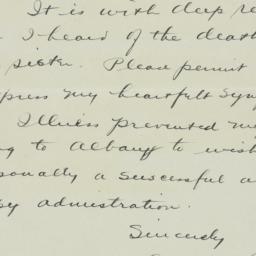 It is with deep re
I heard of the death
sister. Please permit
press my heartfelt sym
Illness prevented m
ng to Albany to wish
sonally a successful a
py admistration.
Sincerely